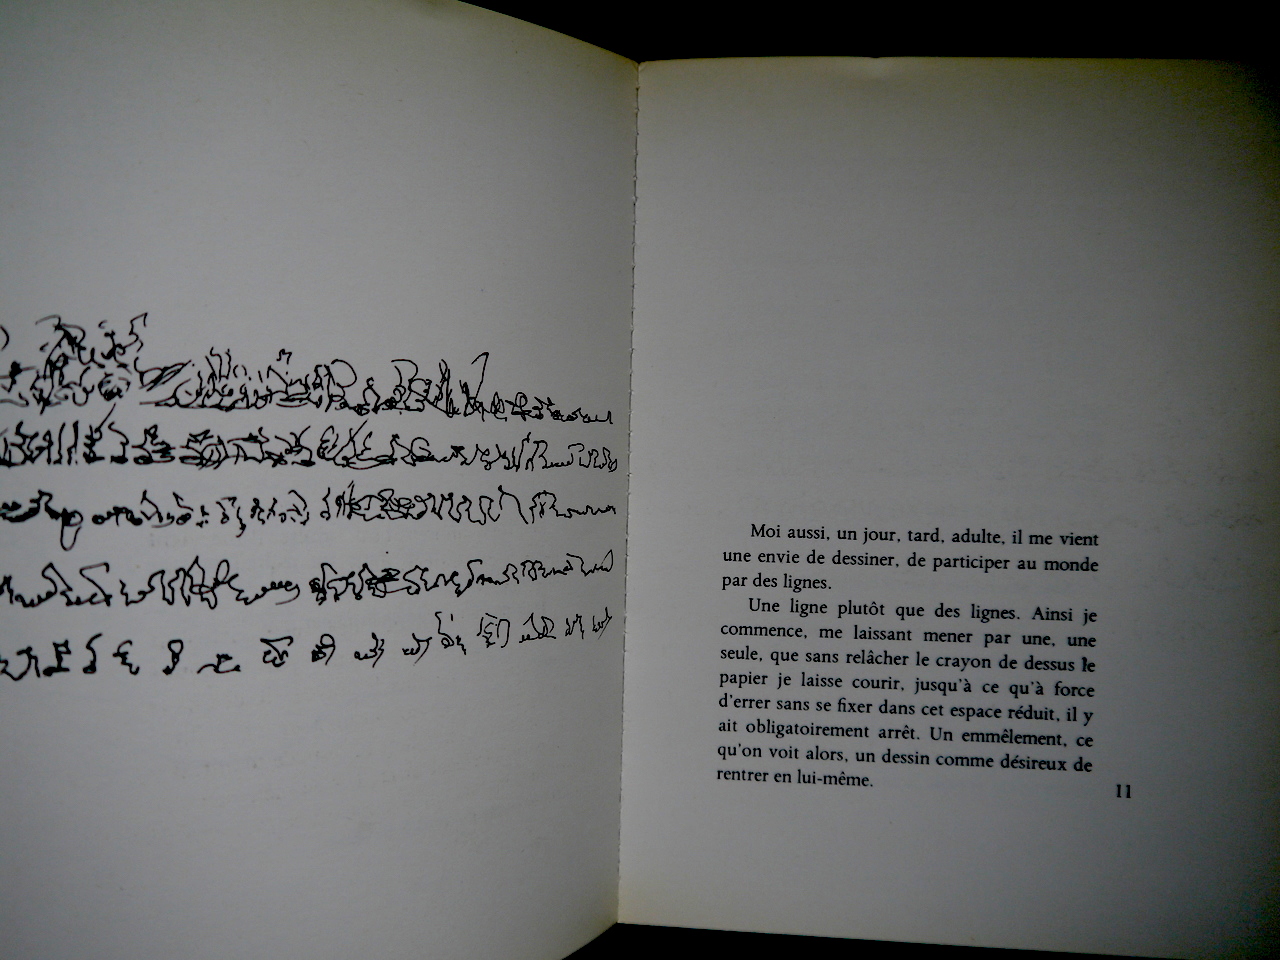 Moi aussi, un jour, tard, adulte, il me vient
une envie de dessiner, de participer au monde
par des lignes.
Une ligne plutôt que des lignes. Ainsi je
commence, me laissant mener par une, une
seule, que sans relâcher le crayon de dessus le
papier je laisse courir, jusqu'à ce qu'à force
d'errer sans se fixer dans cet espace réduit, il y
ait obligatoirement arrêt. Un emmêlement, ce
qu'on voit alors, un dessin comme désireux de
rentrer en lui-même.
11